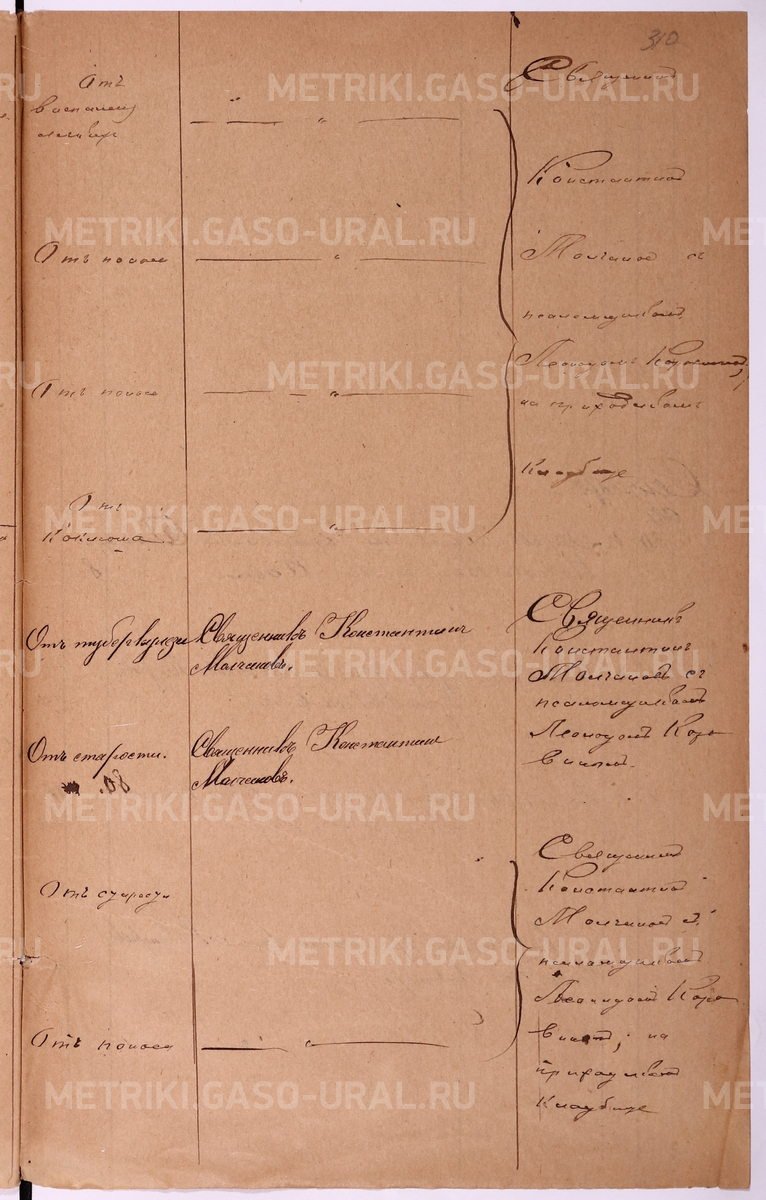 310
Отъ
METRIKI.GASO-URAL.RU
Священникъ
Константинъ
METRIKI.GASO-URAL.RU
Отъ поноса
Молчановъ съ
псаломщикомъ
METRIKI.GASO-URAL.RU
Отъ поноса
на приходскомъ
Кладбище
Отъ
METRIKI.GASO-URAL.RU
Коклюша
Отъ туберкулези
Священникъ Константинъ
Молчановъ.
Священникъ
Константинъ
Молчановъ съ
псаломщикомъ
METRIKI.GASO-URAL.RU
Отъ старости.
80.
Священникъ Константинъ
Молчановъ.
METRIKI.GASO-URAL.RU
Священникъ
Константинъ
Молчановъ съ
псаломщикомъ
METRIKI.GASO-URAL.RU
Отъ поноса
на
приходском
Кладбище
METRIKI.GASO-URAL.RU